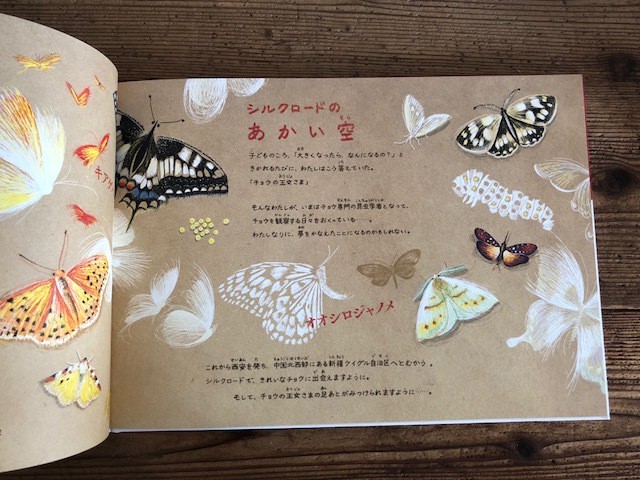 シルクロードの
あかい空
子どものころ、「大きくなったら、なんになるの？」と
きかれるたびに、わたしはこう答えていた。
「チョウの王女さま」
そんなわたしが、いまはチョウ専門の昆虫学者となって、
チョウを観察する日々をおくっている──。
わたしなりに、夢をかなえたことになるのかもしれない。
オオシロジャノメ
これから西安を発ち、中国北西部にある新疆ウイグル自治区へとむかう。
シルクロードで、きれいなチョウに出会えますように。
そして、チョウの王女さまの足あとがみつけられますように──。